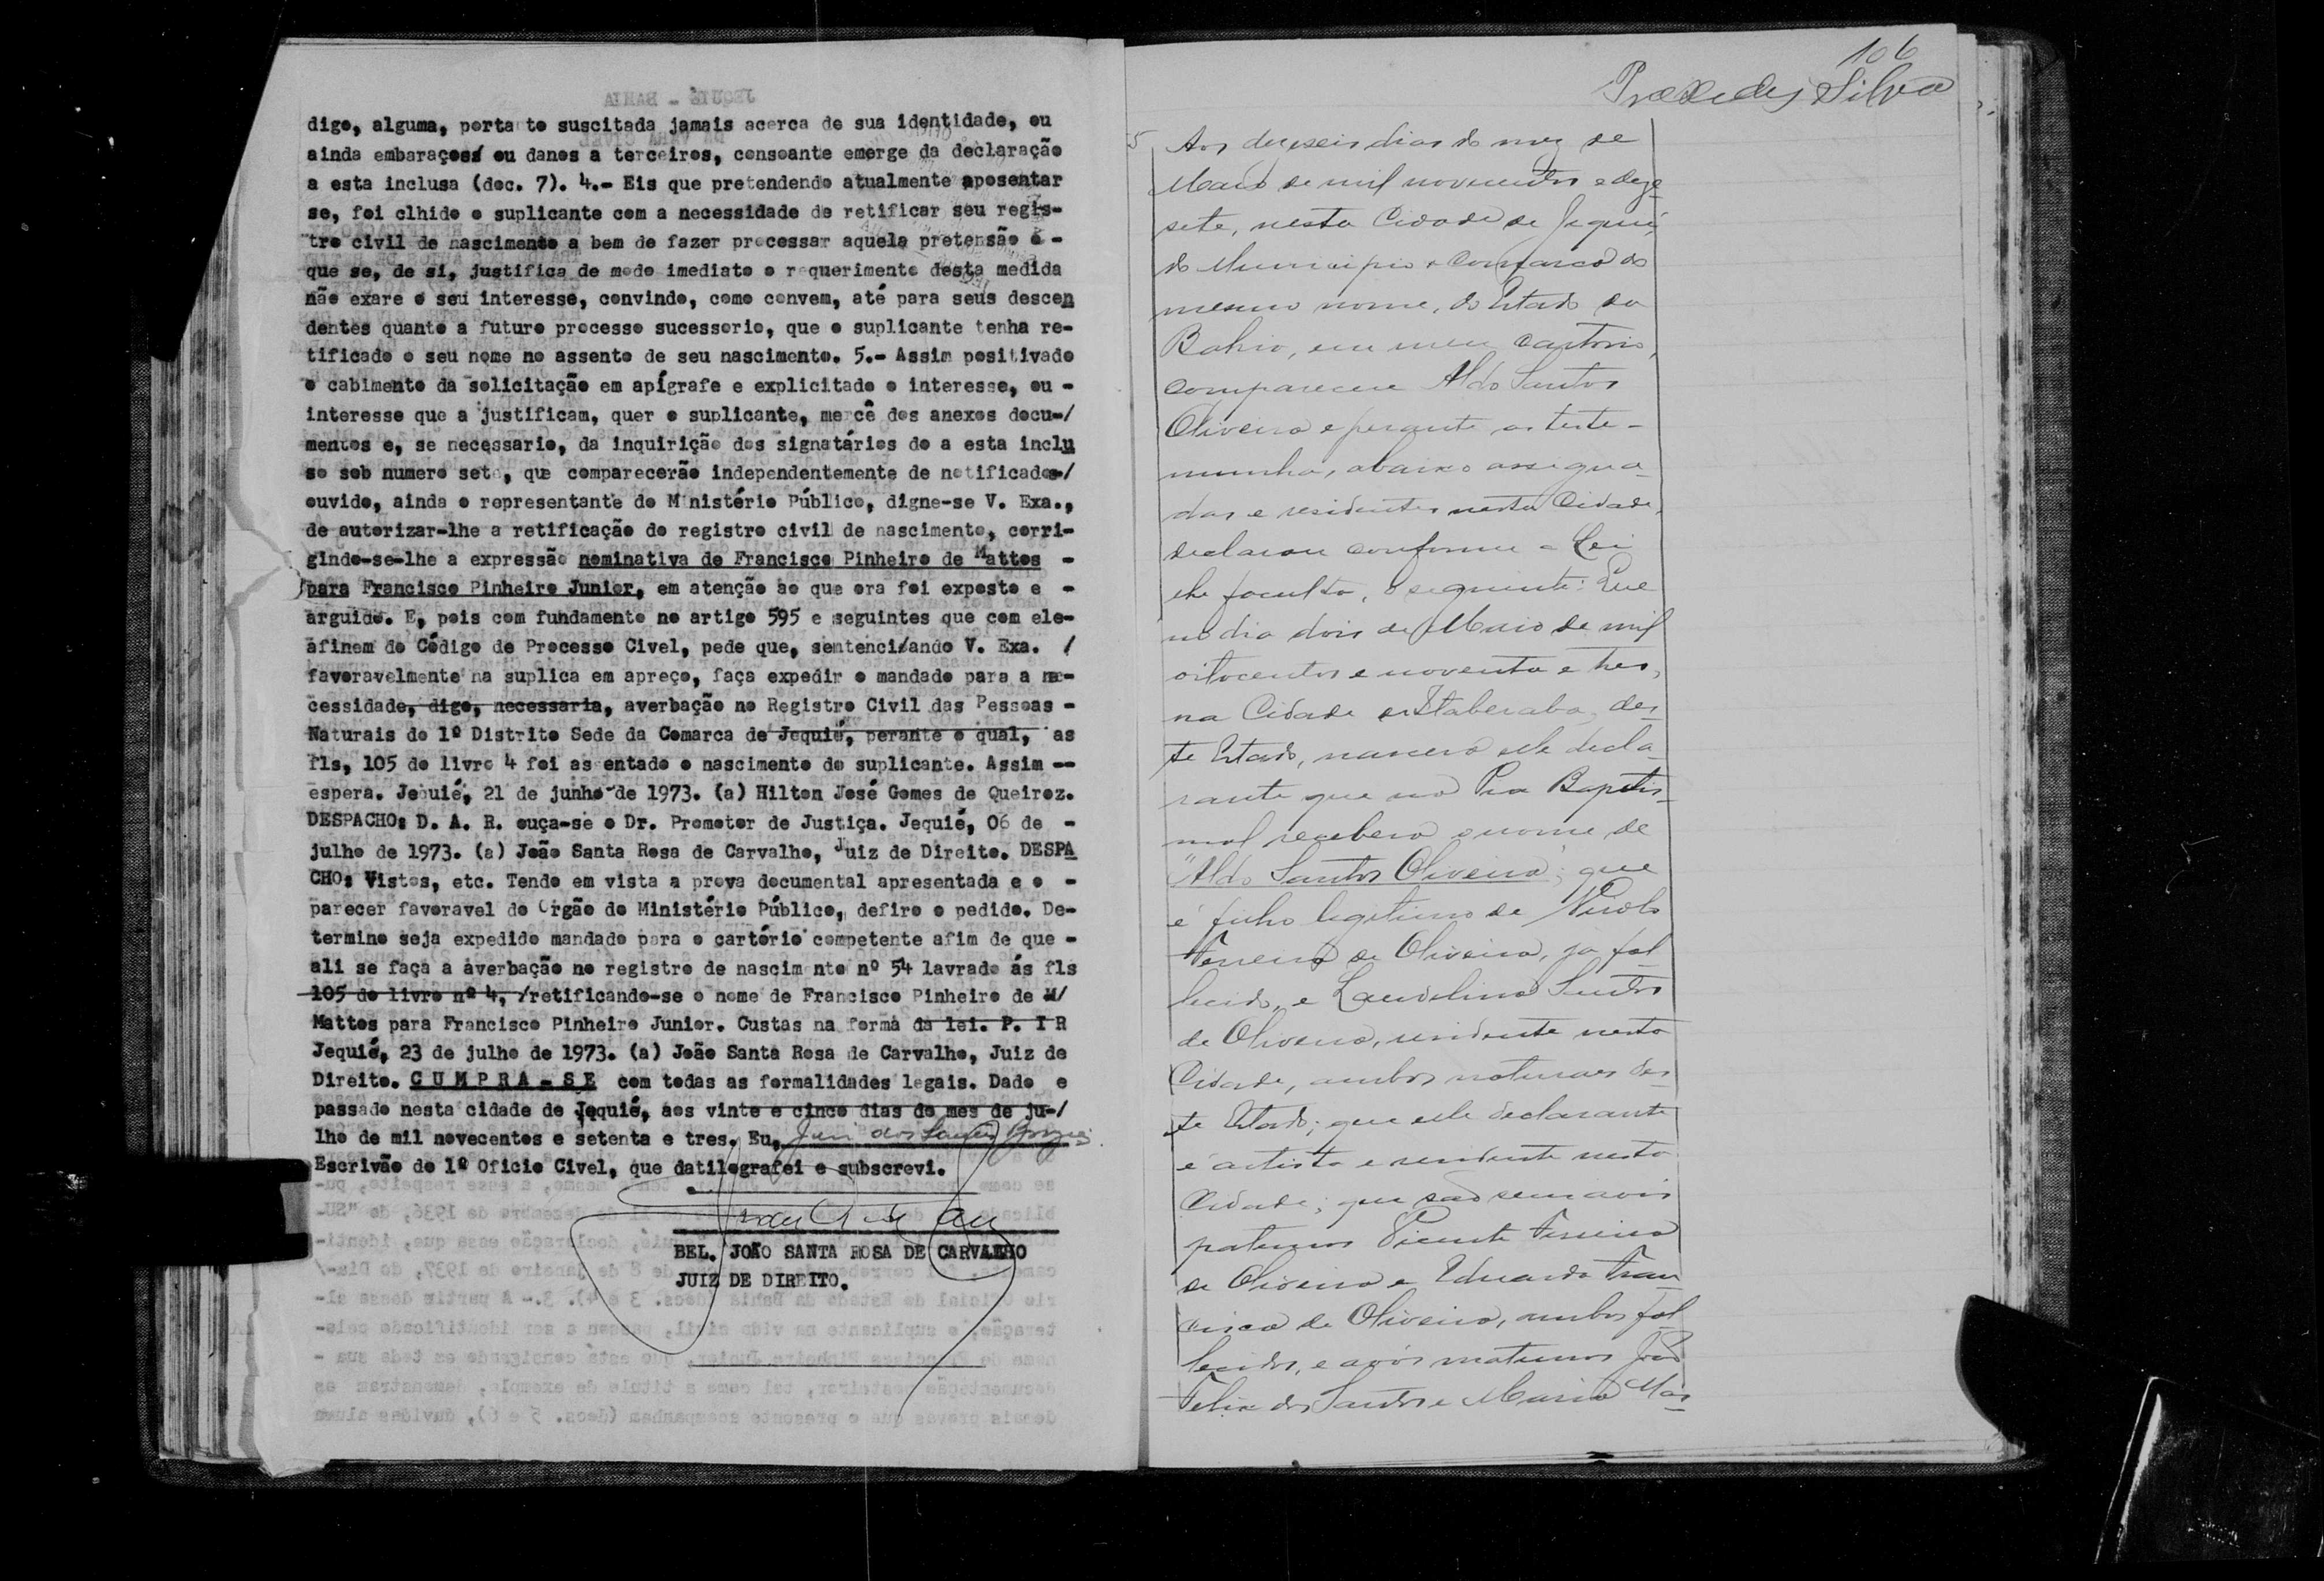 digo, alguma, porta to suscitada jamais acerca de sua identidade, ou
ainda embaraços/ ou danos a terceiros, consoante emerge da declaração
a esta inclusa (doc. 7). 4.- Eis que pretendendo atualmente aposentar
se, foi clhido o suplicante com a necessidade de retificar seu regis-
tro civil de nascimento a bem de fazer processar aquela pretensão é -
que se, de si, justifica de modo imediato o requerimento desta medida
não exare o seu interesse, convindo, como convem, até para seus descen
dentes quanto a futuro processo sucessorio, que o suplicante tenha re-
tificado o seu nome no assento de seu nascimento. 5.- Assim positivado
o cabimento da solicitação em apígrafe e explicitado o interesse, ou -
interesse que a justificam, quer o suplicante, mercê dos anexos docu-/
mentos e, se necessario, da inquirição dos signatários do a esta inclu
so sob numero sete, que comparecerão independentemente de notificados/
ouvido, ainda o representante do Ministério Público, digne-se V. Exa.,
de autorizar-lhe a retificação do registro civil de nascimento, corri-
gindo-se-lhe a expressão nominativa de Francisco Pinheiro de Mattos -
para Francisco Pinheiro Junior, em atenção ao que ora foi exposto e -
arguido. E, pois com fundamento no artigo 595 e seguintes que com ele-
afinem do Código de Processo Civel, pede que, sentenci/ando V. Exa. /
favoravelmente na suplica em apreço, faça expedir o mandado para a ne-
cessidade, digo, necessaria, averbação no Registro Civil das Pessoas -
Naturais do 1º Distrito Sede da Comarca de Jequié, perante o qual, as
fls, 105 do livro 4 foi as entado o nascimento do suplicante. Assim --
espera. Jequié, 21 de junho de 1973. (a) Hilton José Gomes de Queiroz.
DESPACHO: D. A. R. ouça-se o Dr. Promotor de Justiça. Jequié, 06 de -
julho de 1973. (a) João Santa Rosa de Carvalho, Juiz de Direito. DESPA
CHO: Vistos, etc. Tendo em vista a prova documental apresentada e o -
parecer favoravel do Orgão do Ministério Público, defiro o pedido. De-
termino seja expedido mandado para o cartório competente afim de que -
ali se faça a averbação no registro de nascim nto nº 54 lavrado ás fls
105 do livro nº 4, /retificando-se o nome de Francisco Pinheiro de M/
Mattos para Francisco Pinheiro Junior. Custas na forma da lei. P. I R
Jequié, 23 de julho de 1973. (a) João Santa Rosa de Carvalho, Juiz de
Direito. C U M P R A - S E com todas as formalidades legais. Dado e
passado nesta cidade de Jequié, aos vinte e cinco dias do mes de ju-/
lho de mil novecentos e setenta e tres. Eu,
Escrivão do 1º Oficio Civel, que datilografei e subscrevi.
BEL. JOÃO SANTA ROSA DE CARVALHO
JUIZ DE DIREITO.
106
Praxedes Silva
5 Aos dezeseis dias do mez de
Maio de mil novecentos e deze-
sete, nesta Cidade de Jequié,
do Municipio e Comarca do
mesmo nome, do Estado da
Bahia, em meu Cartorio,
compareceu Aldo Santos
Oliveira e perante as teste-
munhas, abaixo assigna-
das e residentes nesta Cidade,
declarou conforme a Lei
lhe faculta, o seguinte: Que
no dia dois de Maio de mil
oitocentos e noventa e tres,
na Cidade de Itaberaba, des-
te Estado, nascera elle decla-
rante que na Pia Baptis-
mal recebera o nome de
"Aldo Santos Oliveira"; que
é filho legitimo de
Ferreira de Oliveira, ja fal-
lecido, e Laudelina Santos
de Oliveira, residente nesta
Cidade, ambos naturaes des-
te Estado; que elle declarante
é artista e residente nesta
Cidade; que são seus avós
paternos Vicente Ferreira
de Oliveira e Eduarda Fran
cisca de Oliveira, ambos fal-
lecidos, e avós maternos João
Felix dos Santos e Maria